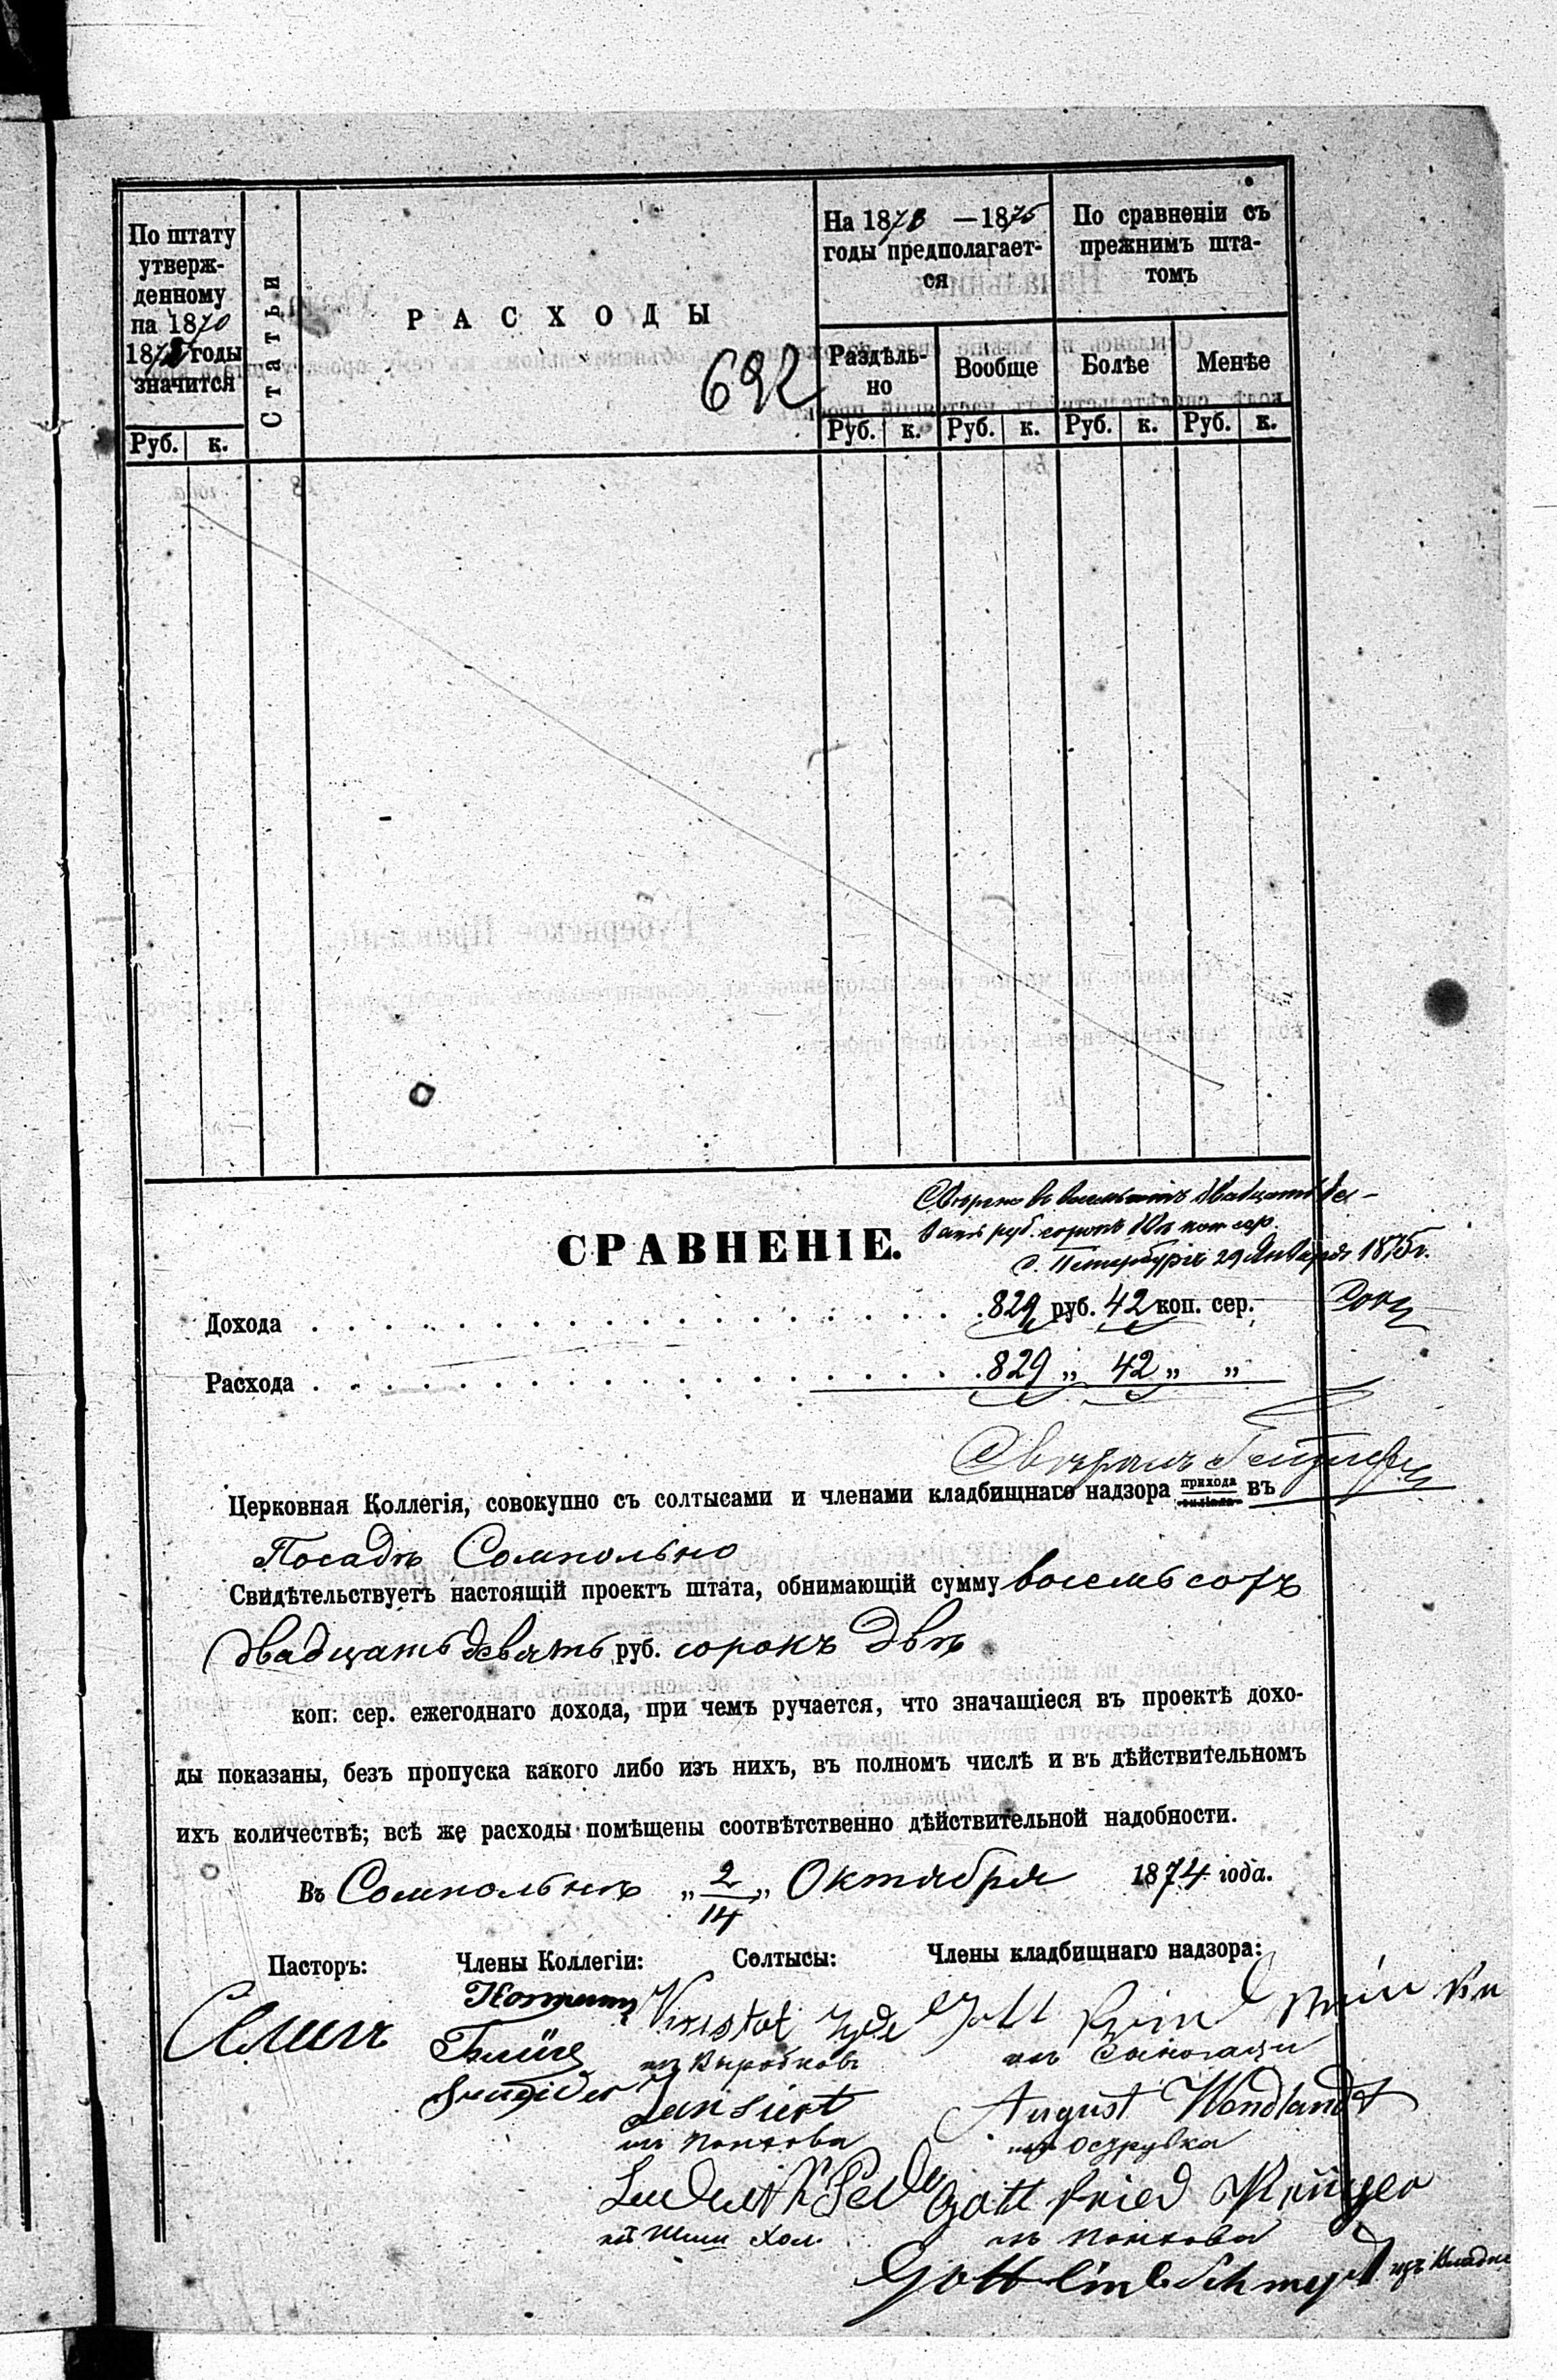 По штату
утверж-
денному
на 1870
1872 годы
значится
Статьи
РАСХОДЫ
692
На 1873 — 1875
годы предполагает-
ся
По сравненіи съ
прежнимъ шта-
томъ
Раздѣль-
но
Вообще
Болѣе
Менѣе
Руб. к. Руб. к. Руб. к. Руб. к. Руб. к.
руб. сорокъ коп сер.
С. Петербургъ 29 Января 1875 г.
СРАВНЕНІЕ.
Дохода . . . . . 829 руб. 42 коп. сер.
Расхода . . . . . 829 „ 42 „ „
Церковная Коллегія, совокупно съ солтысами и членами кладбищнаго надзора прихода въ
Посадѣ Сомпольно
Свидѣтельствуетъ настоящій проектъ штата, обнимающій сумму восемьсотъ
двадцать девять руб. сорокъ двѣ
коп: сер. ежегоднаго дохода, при чемъ ручается, что значащіеся въ проектѣ дохо-
ды показаны, безъ пропуска какого либо изъ нихъ, въ полномъ числѣ и въ дѣйствительномъ
ихъ количествѣ; всѣ же расходы помѣщены соотвѣтственно дѣйствительной надобности.
Въ Сомпольнѣ „2/14„ Октября 1874 года.
Пасторъ: Члены Коллегіи: Солтысы: Члены кладбищнаго надзора:
August Wendlandt
Gottfried Krüger
Gottlieb Schmeydt изъ